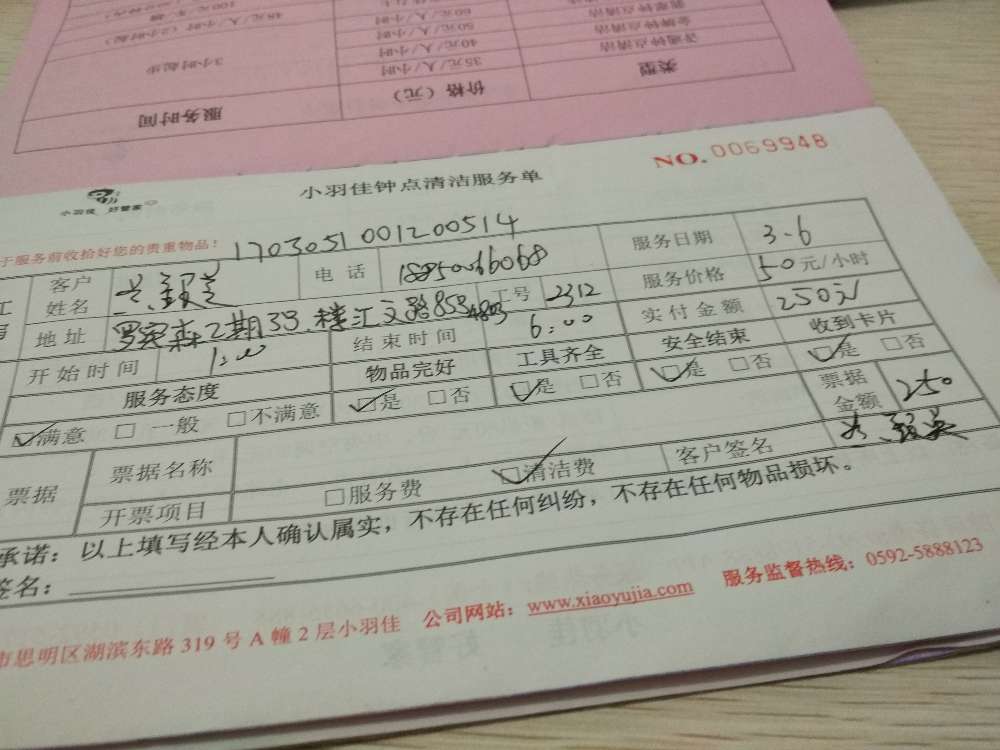 服务时间 价格（元） 类型
3小时起步 35元/人/小时 普通钟点清洁
40元/人/小时 金牌钟点清洁
50元/人/小时
60元/人/小时
NO.0069948
小羽佳 好管家
小羽佳钟点清洁服务单
于服务前收拾好您的贵重物品！
1703051001200514
客户姓名 电话 18850066068 服务日期 3-6
地址 期 工号 2312 服务价格 50元/小时
开始时间 1:00 结束时间 6:00 实付金额 250元
服务态度 物品完好 工具齐全 安全结束 收到卡片
☑满意 □一般 □不满意 ☑是 □否 ☑是 □否 ☑是 □否 ☑是 □否
票据 票据名称 票据金额 250
开票项目 □服务费 ☑清洁费 客户签名
承诺：以上填写经本人确认属实，不存在任何纠纷，不存在任何物品损坏。
签名：
市思明区湖滨东路319号A幢2层小羽佳 公司网站：www.xiaoyujia.com 服务监督热线：0592-5888123